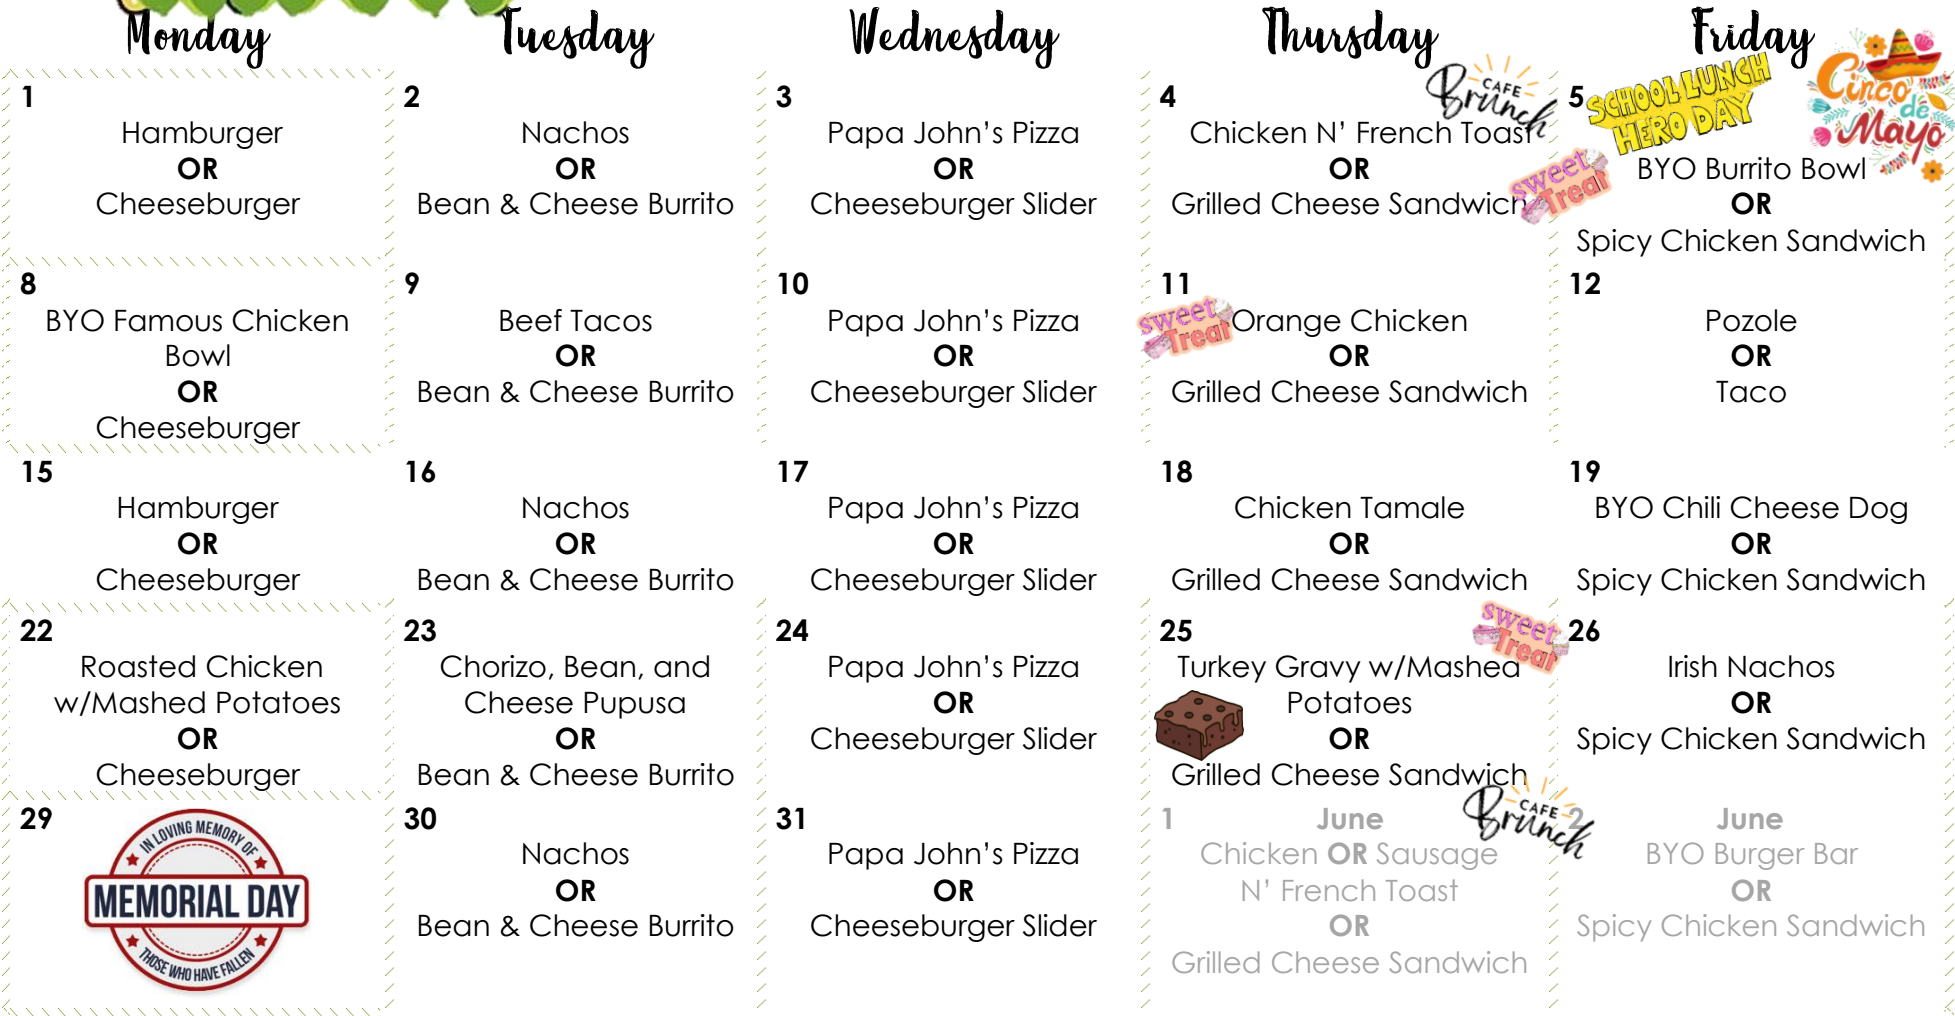 Monday
Tuesday
Wednesday
Thursday
Friday
1
Hamburger
OR
Cheeseburger
2
Nachos
OR
Bean & Cheese Burrito
3
Papa John’s Pizza
OR
Cheeseburger Slider
4
CAFE
Brunch
Chicken N’ French Toast
OR
Grilled Cheese Sandwich
sweet
Treat
5
SCHOOL LUNCH
HERO DAY
Cinco
de
Mayo
BYO Burrito Bowl
OR
Spicy Chicken Sandwich
8
BYO Famous Chicken
Bowl
OR
Cheeseburger
9
Beef Tacos
OR
Bean & Cheese Burrito
10
Papa John’s Pizza
OR
Cheeseburger Slider
11
sweet
Treat
Orange Chicken
OR
Grilled Cheese Sandwich
12
Pozole
OR
Taco
15
Hamburger
OR
Cheeseburger
16
Nachos
OR
Bean & Cheese Burrito
17
Papa John’s Pizza
OR
Cheeseburger Slider
18
Chicken Tamale
OR
Grilled Cheese Sandwich
19
BYO Chili Cheese Dog
OR
Spicy Chicken Sandwich
22
Roasted Chicken
w/Mashed Potatoes
OR
Cheeseburger
23
Chorizo, Bean, and
Cheese Pupusa
OR
Bean & Cheese Burrito
24
Papa John’s Pizza
OR
Cheeseburger Slider
25
sweet
Treat
Turkey Gravy w/Mashed
Potatoes
OR
Grilled Cheese Sandwich
26
Irish Nachos
OR
Spicy Chicken Sandwich
29
IN LOVING MEMORY OF
MEMORIAL DAY
THOSE WHO HAVE FALLEN
30
Nachos
OR
Bean & Cheese Burrito
31
Papa John’s Pizza
OR
Cheeseburger Slider
1 June
CAFE
Brunch
Chicken OR Sausage
N’ French Toast
OR
Grilled Cheese Sandwich
2 June
BYO Burger Bar
OR
Spicy Chicken Sandwich